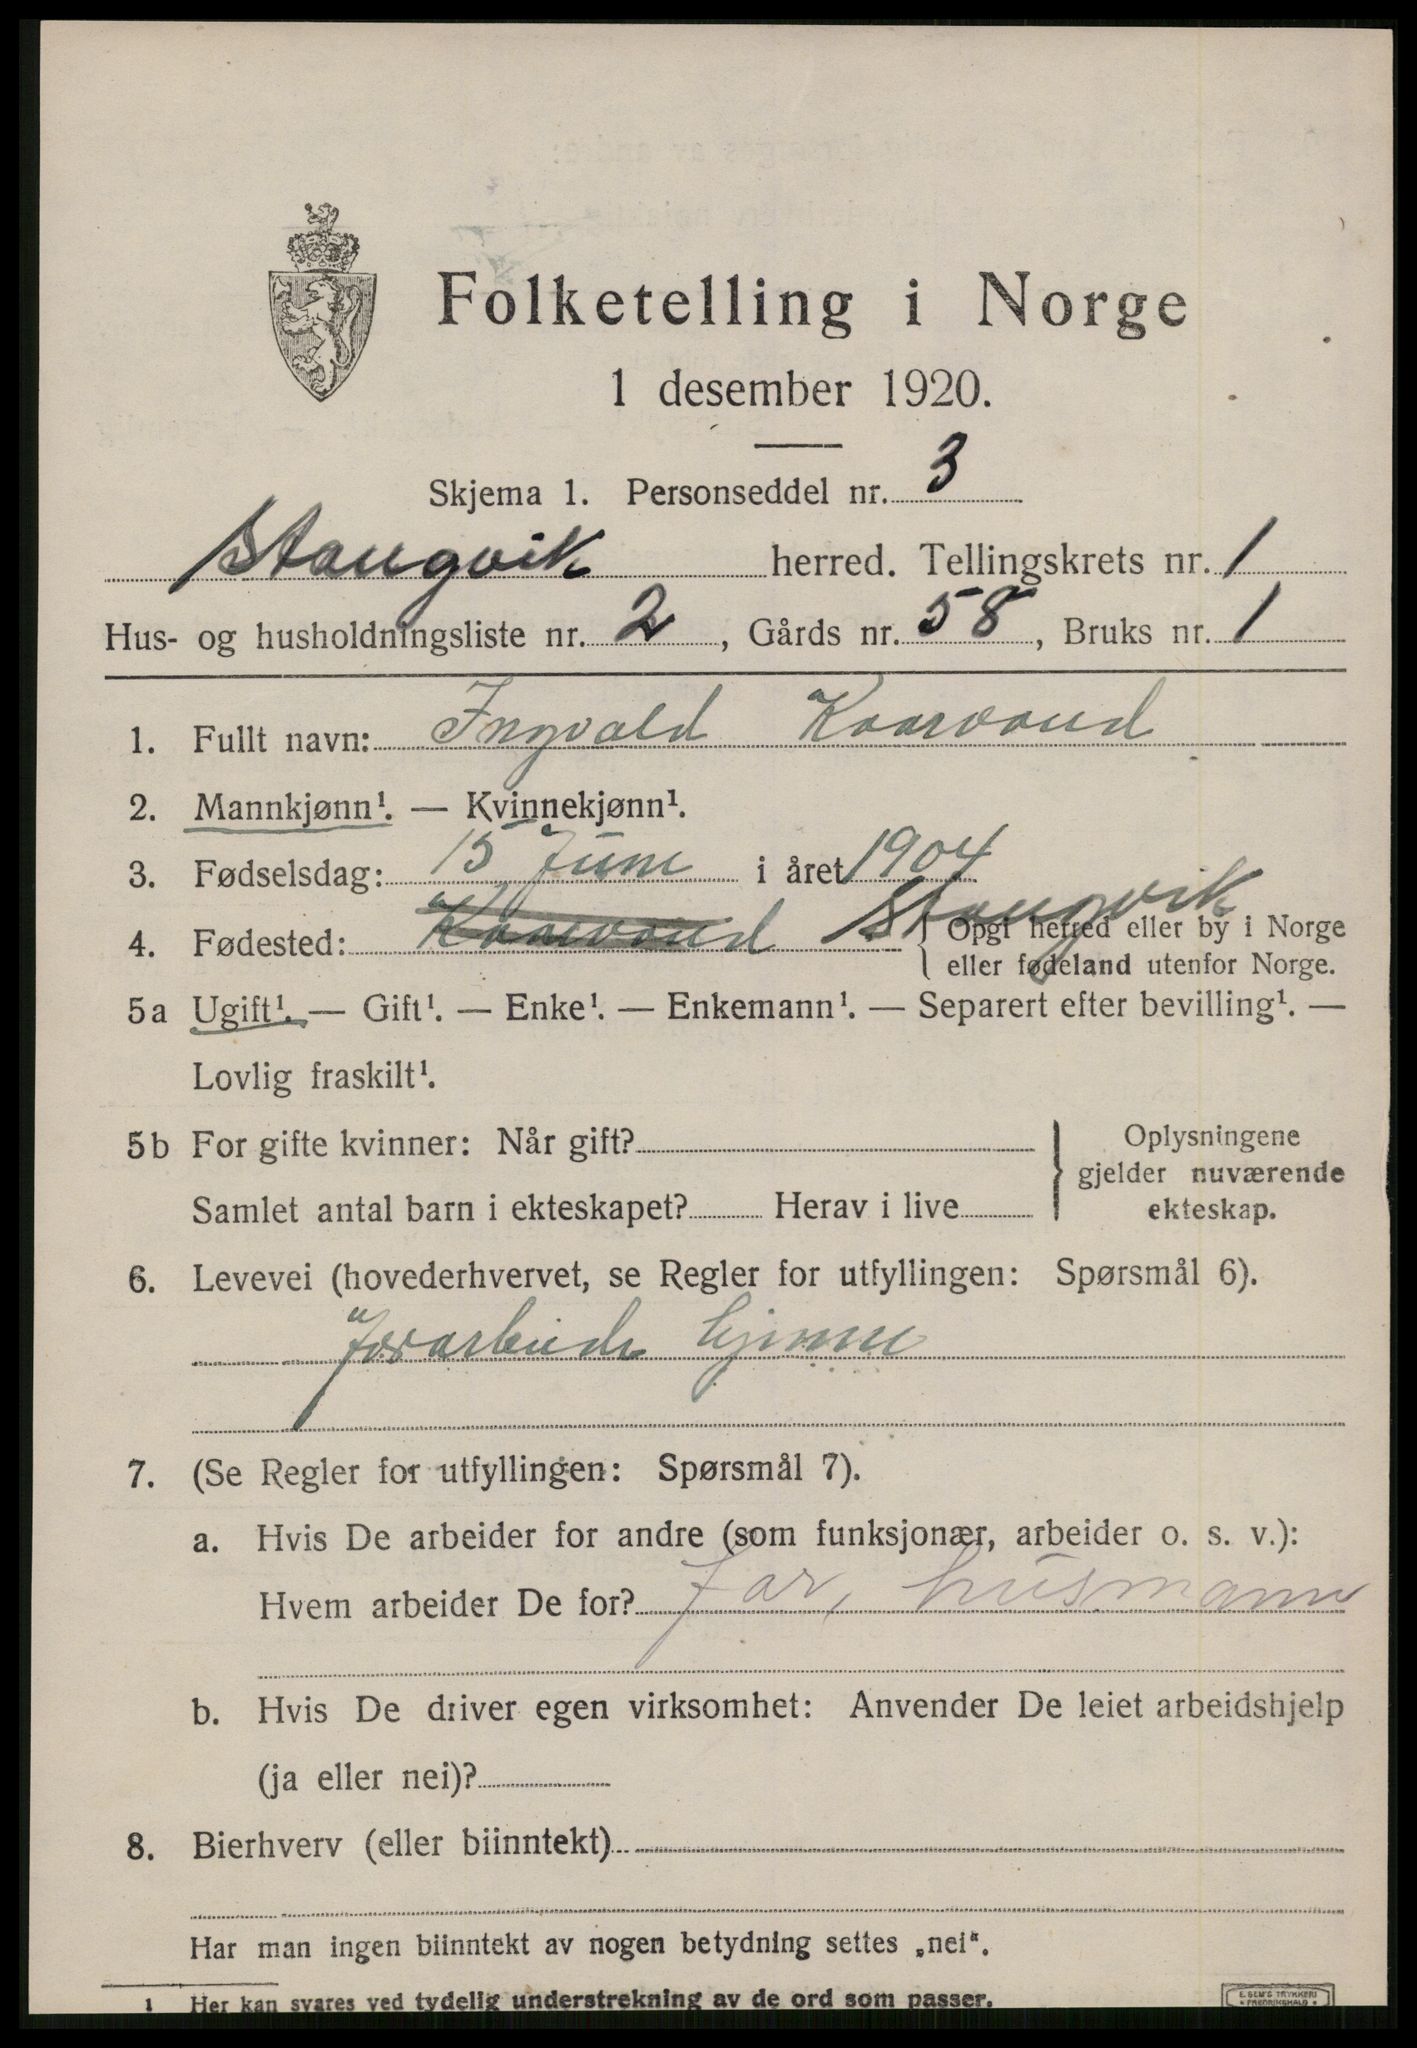 Folketelling i Norge
1 desember 1920.
Skjema 1. Personseddel nr. 3
Stangvik herred. Tellingskrets nr. 1
Hus- og husholdningsliste nr. 2, Gårds nr. 58, Bruks nr. 1
1. Fullt navn: Ingvald Kaarvand
2. Mannkjønn¹. — Kvinnekjønn¹.
3. Fødselsdag: 15 Juni i året 1904
4. Fødested: Kaarvand Stangvik { Opgi herred eller by i Norge
eller fødeland utenfor Norge.
5a Ugift¹. — Gift¹. — Enke¹. — Enkemann¹. — Separert efter bevilling¹. —
Lovlig fraskilt¹.
5b For gifte kvinner: Når gift?
Samlet antal barn i ekteskapet? Herav i live
} Oplysningene
gjelder nuværende
ekteskap.
6. Levevei (hovederhvervet, se Regler for utfyllingen: Spørsmål 6).
hjemme
7. (Se Regler for utfyllingen: Spørsmål 7).
a. Hvis De arbeider for andre (som funksjonær, arbeider o. s. v.):
Hvem arbeider De for? Far, husmann
b. Hvis De driver egen virksomhet: Anvender De leiet arbeidshjelp
(ja eller nei)?
8. Bierhverv (eller biinntekt)
Har man ingen biinntekt av nogen betydning settes „nei".
1 Her kan svares ved tydelig understrekning av de ord som passer.
E. SEM'S TRYKKERI
FREDRIKSHALD